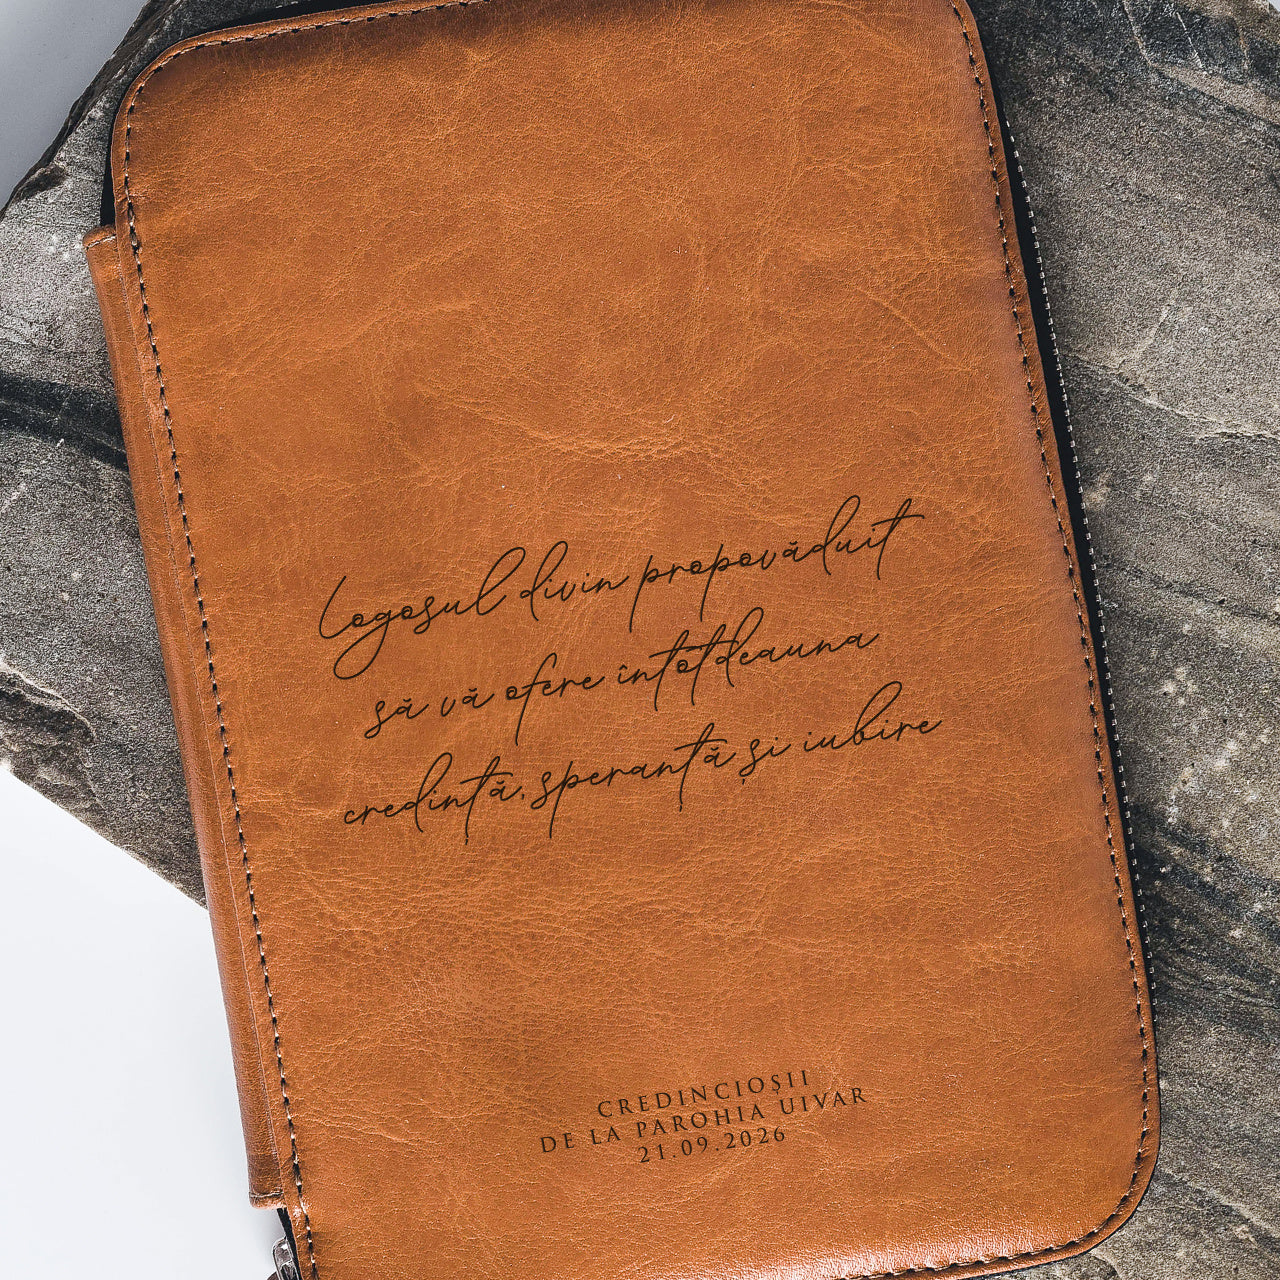 Logosul divin propovăduit
să vă ofere întotdeauna
credință, speranță și iubire
CREDINCIOȘII
DE LA PAROHIA UIVAR
21.09.2026